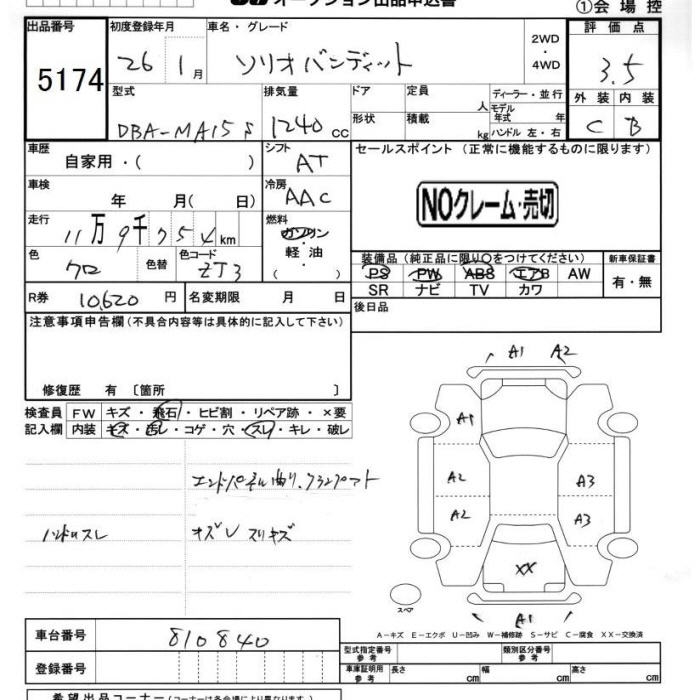 オークション出品申込書
①会場控
出品番号
5174
初度登録年月
26 1月
車名・グレード
ソリオバンディット
2WD
・
4WD
評価点
3.5
外装 内装
C B
型式
DBA-MA15S
排気量
1240cc
ドア
定員
人
形状
積載
kg
ディーラー・並行
モデル年式 年
ハンドル 左・右
車歴
自家用・( )
シフト
AT
セールスポイント (正常に機能するものに限ります)
車検
年 月( 日)
冷房
AAC
NOクレーム・売切
走行
11万9千754km
燃料
ガソリン
・
軽油
・
( )
色
クロ
色替
色コード
ZJ3
装備品 (純正品に限り〇をつけてください)
PS PW ABS エアB AW
SR ナビ TV カワ
新車保証書
有・無
R券 10,620円
名変期限 月 日
後日品
注意事項申告欄 (不具合内容等は具体的に記入して下さい)
修復歴 有 〔箇所 〕
検査員記入欄
FW キズ・飛石・ヒビ割・リペア跡・×要
内装 キズ・汚レ・コゲ・穴・スレ・キレ・破レ
エンドパネル曲り、
ハンドルスレ
スリキズ
A1 A2
A1
A2 A3
A2 A3
XX
A1
スペア
A-キズ E-エクボ U-凹み W-補修跡 S-サビ C-腐食 XX-交換済
車台番号
810840
登録番号
型式指定番号
参考
類別区分番号
参考
車庫証明用
参考
長さ cm
幅 cm
高さ cm
希望出品コーナー (コーナーは各会場により異なります。)